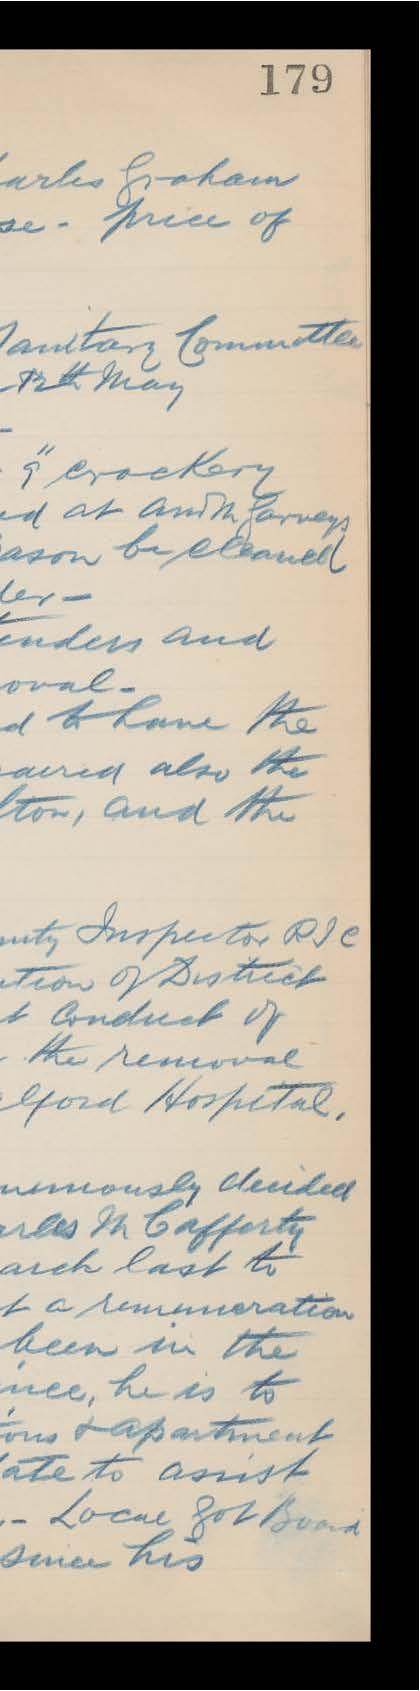 179
arles Graham
se - price of
Sanitary Committee
12th May
-
9" crockery
ed at
ason be cleaned
der -
enders and
oval -
d to have the
aired also the
lton, and the
unty Inspector RIC
ation of District
t conduct of
the removal
elford Hospital.
nimously decided
arles McCafferty
arch last to
t a remuneration
been in the
ince, he is to
ions & apartment
date to assist
- Local Govt Board
since his